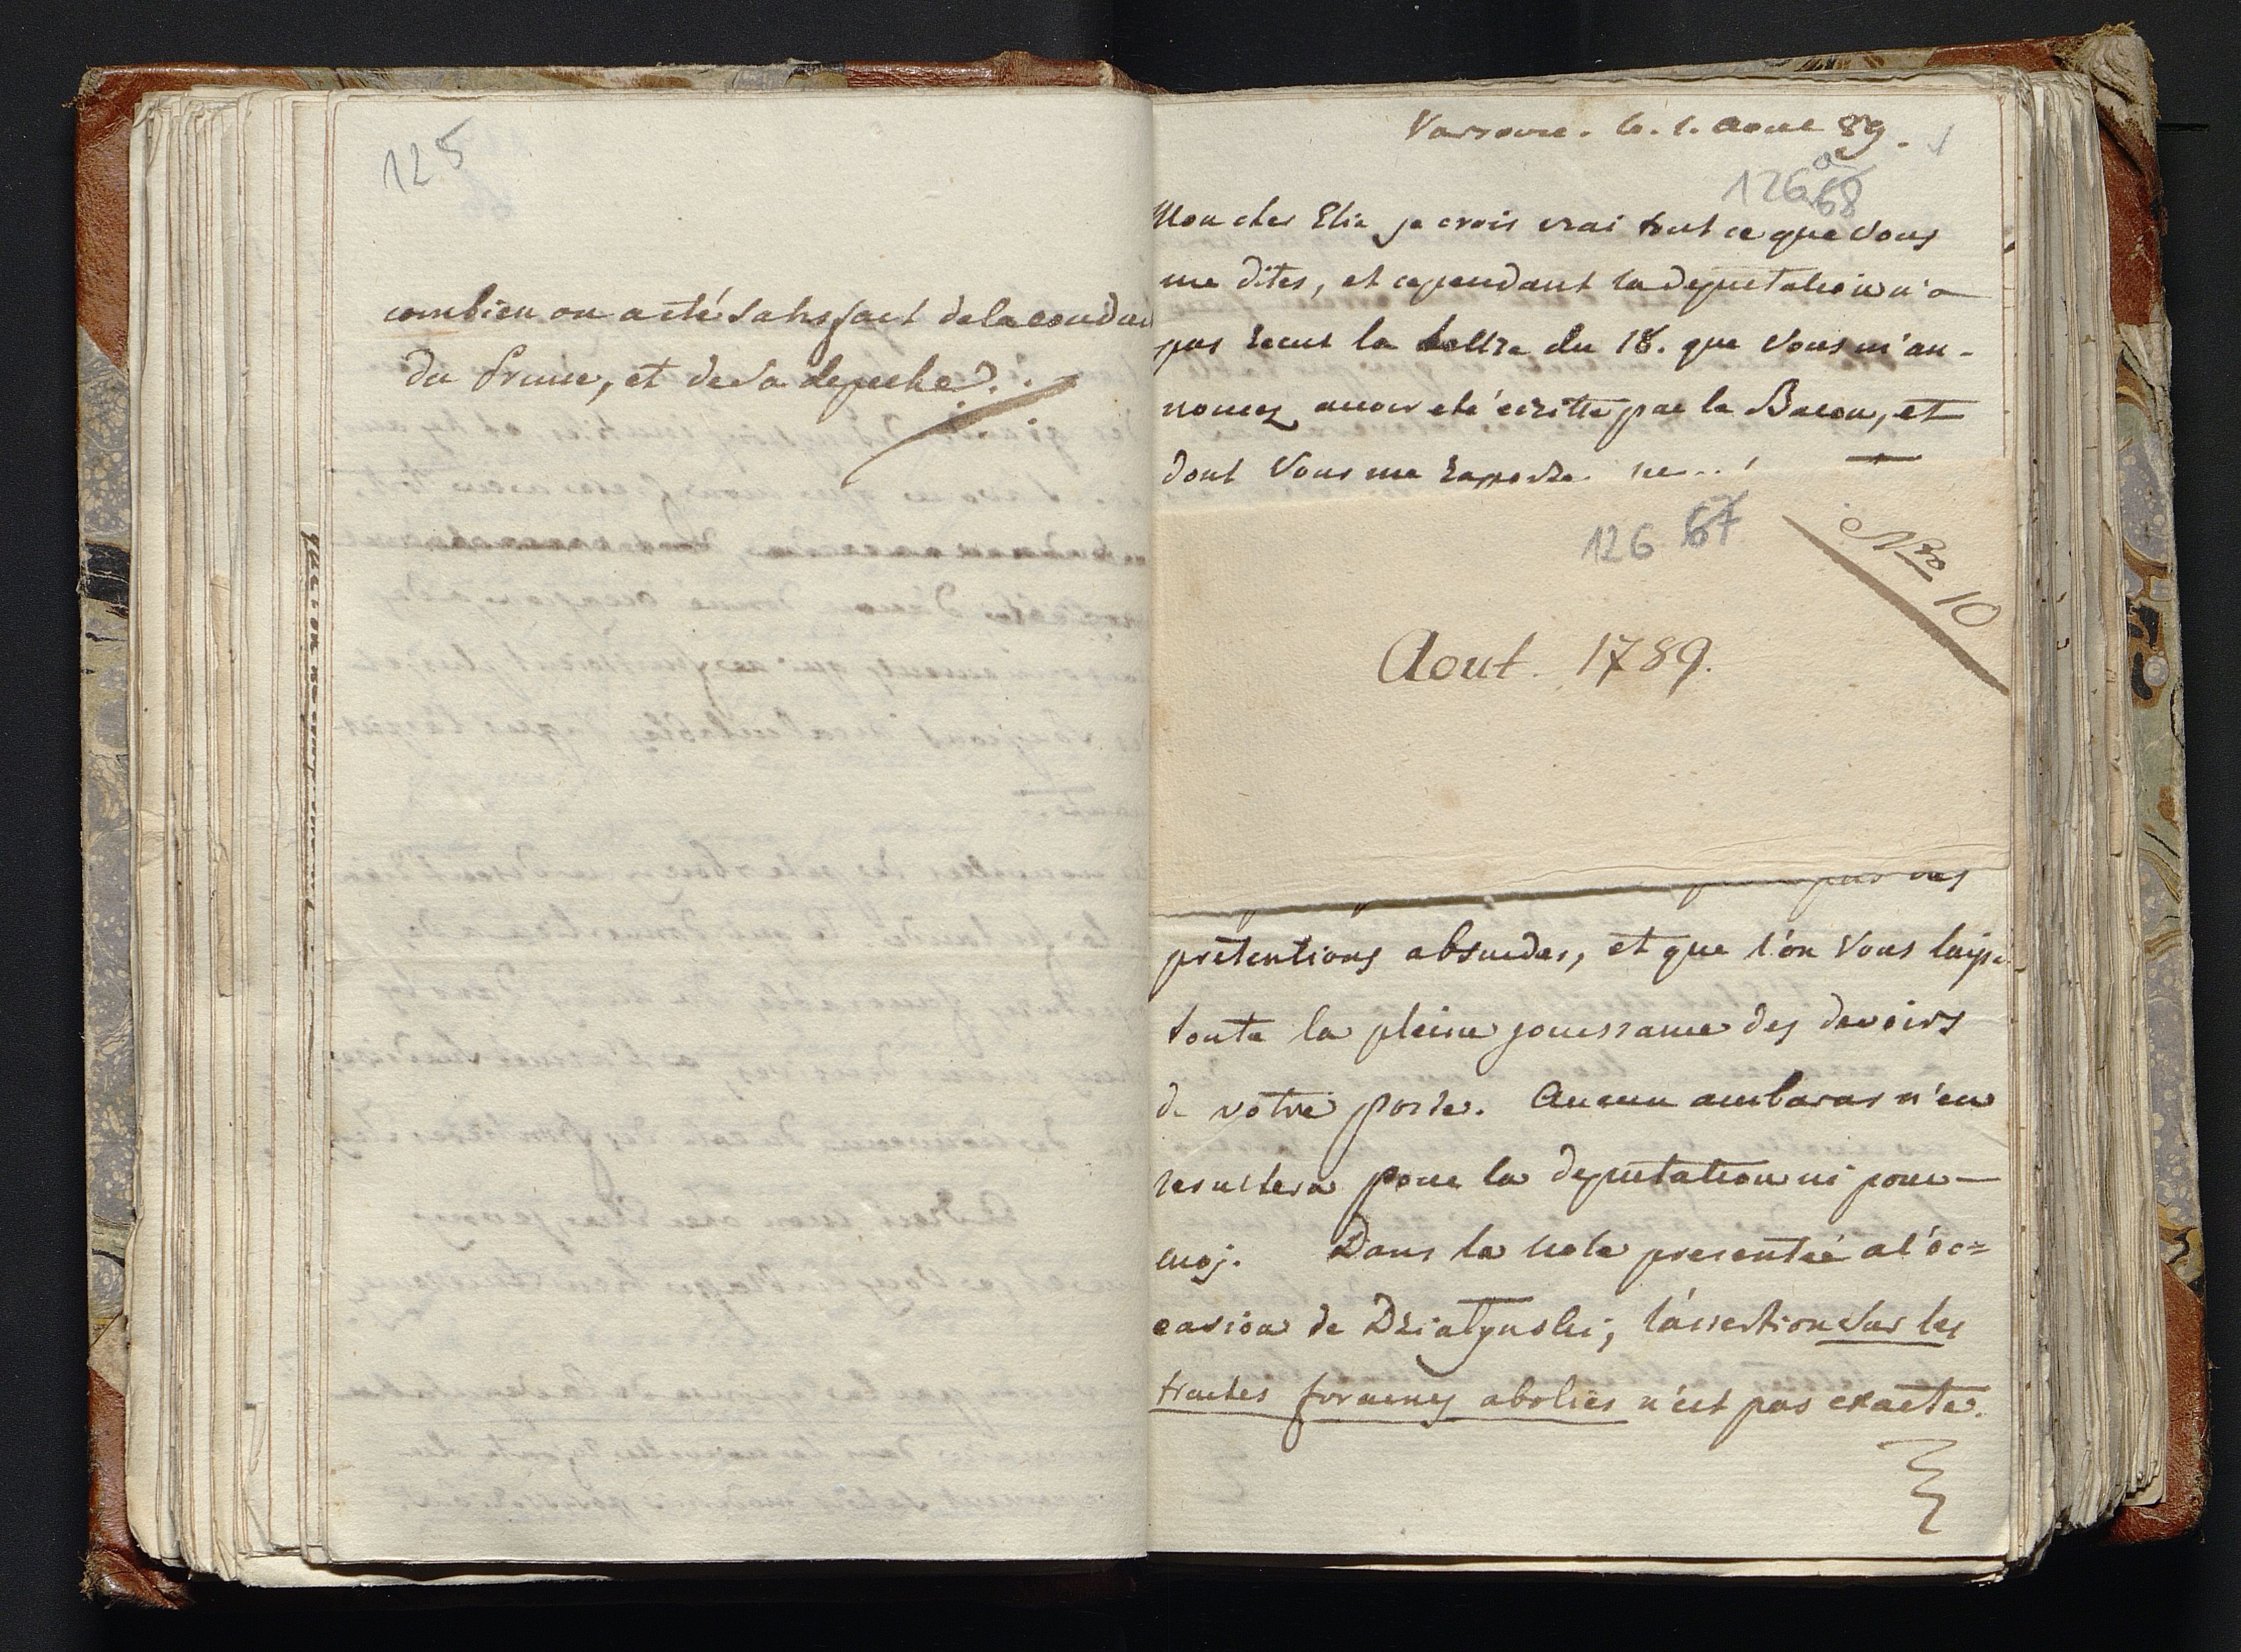 125
combien on a eté satisfait de la conduit
du Prince, et de sa depeche.
Varsovie. le. 1. Aout 89.
126 a 68
Mon cher Elie je crois vrai tout ce que Vous
me dites, et cependant la deputation n'a
pas recut la lettre du 18. que Vous m'an-
noncez avoir eté écritte par le Baron, et
dont Vous me
126 67
Nro 10
Aout. 1789.
pretentions absurdes, et que l'on Vous laisse
toute la pleine jouissance des devoirs
de votre poste. Aucun ambaras n'en
resultera pour la deputation ni pour
moj. Dans la note presentée a l'oc=
casion de Dzialynski, l'assertion sur les
traites formeny abolies n'est pas exacte.